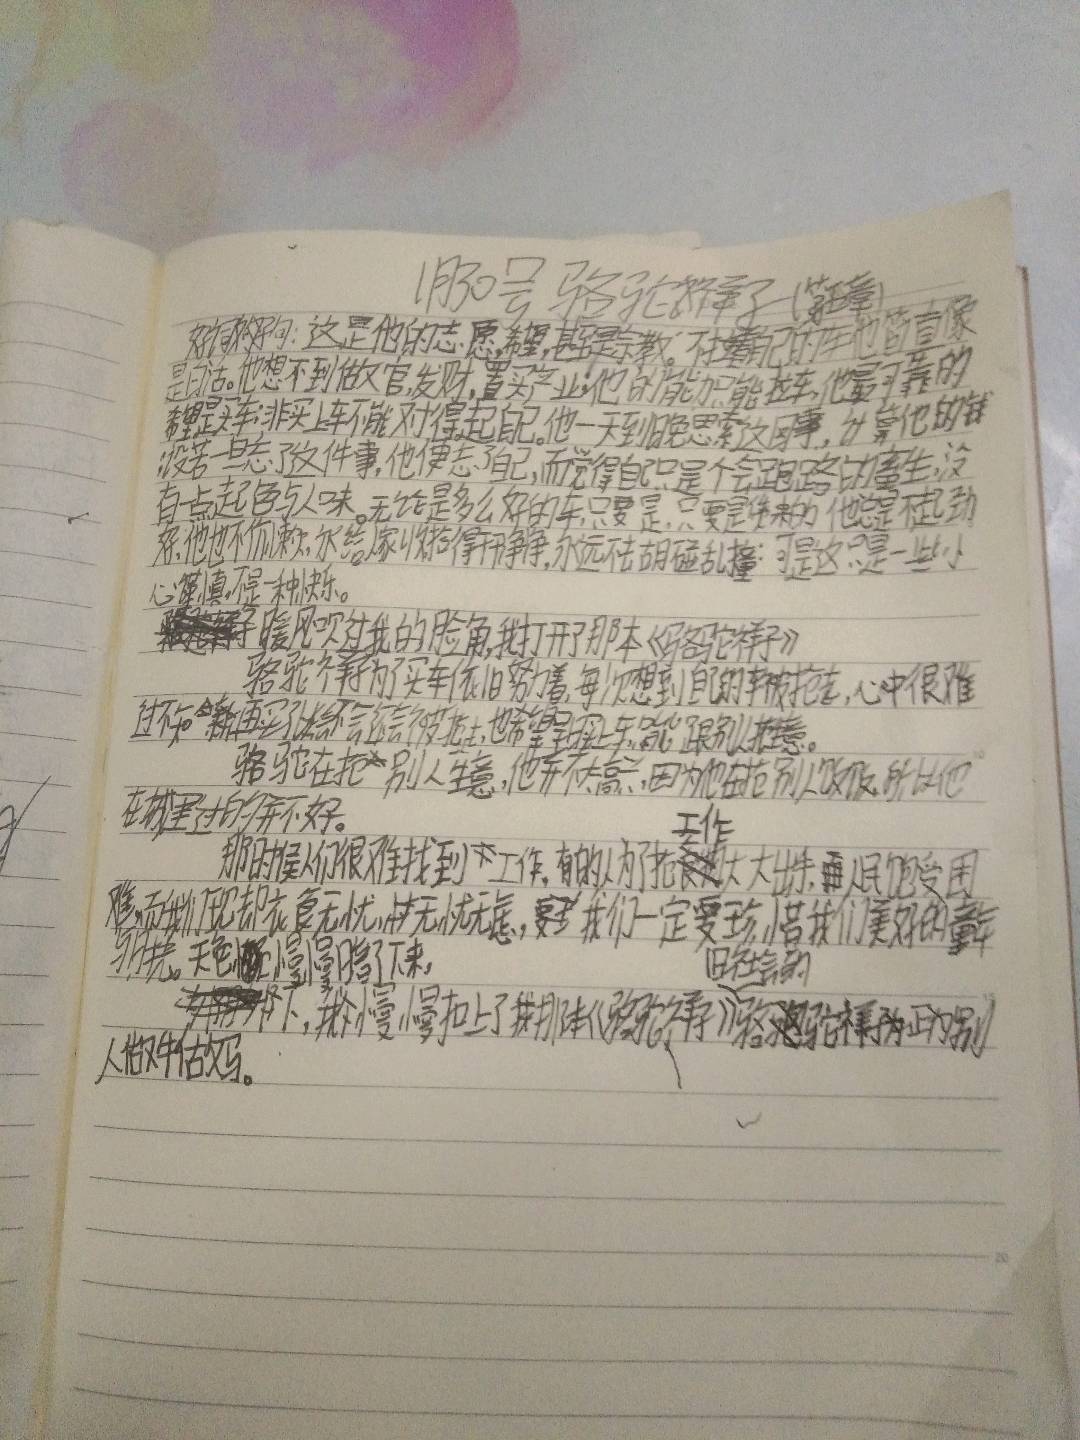 1月30号 骆驼祥子(第五章)
好词好句:这是他的志愿,希望,甚至是宗教。不拉着自己的车他简直像
是白活。他想不到做官,发财,置买产业;他的能力只能拉车,他最可靠的
希望是买车;非买上车不能对得起自己。他一天到晚思索这回事,计算他的钱
;设若一旦忘了这件事,他便忘了自己,而觉得自己只是个会跑路的畜生,没
有一点起色与人味。无论是多么好的车,只要是,只要是赁来的 他总是不起劲
好,他也不偷懒,永给人家收拾得干干净净,永远不去胡碰乱撞;可是这只是一些小
心谨慎,不是一种快乐。
暖风吹过我的脸角,我打开了那本《骆驼祥子》
骆驼祥子为了买车依旧努力着,每次想到自己的车被抢走,心中很难
过不知 再买了 会不会还会被抢走,也希望早日买上车,能跟别人抢生意。
骆驼在抢 别人生意,他并不太高兴,因为他在抢别人饭饭,所以他
在城里过的并不好。
工作
那时候人们很难找到 工作,有的人为了抢 大大出手, 人民饱受困
难,而我们现却衣食无忧, 无忧无虑, 我们一定要珍惜我们美好的童年
天色 慢慢暗了下来,
旧社会的
下,我慢慢扣上了我那本《骆驼祥子》骆 驼祥子 正为别
人做牛做马。